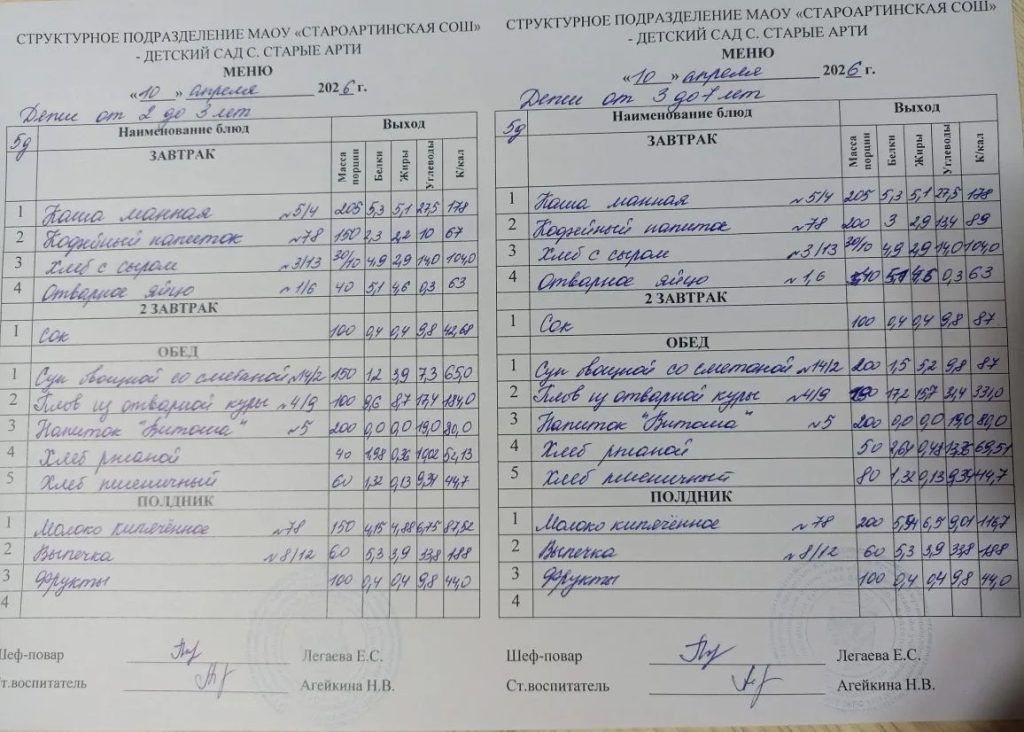 СТРУКТУРНОЕ ПОДРАЗДЕЛЕНИЕ МАОУ «СТАРОАРТИНСКАЯ СОШ»
- ДЕТСКИЙ САД С. СТАРЫЕ АРТИ
МЕНЮ
«10» апреля 2026 г.
Дети от 2 до 3 лет
5д Наименование блюд Выход
ЗАВТРАК Масса порции Белки Жиры Углеводы К/кал
1 Каша манная №5/4 205 5,3 5,1 27,5 178
2 Кофейный напиток №78 150 2,3 2,2 10 67
3 Хлеб с сыром №3/13 30/10 4,9 2,9 14,0 104,0
4 Отварное яйцо №1/6 40 5,1 4,6 0,3 63
2 ЗАВТРАК
1 Сок 100 0,4 0,4 9,8 42,68
ОБЕД
1 Суп овощной со сметаной №14/2 150 1,2 3,9 7,3 65,0
2 Плов из отварной куры №4/9 100 9,6 8,7 17,4 184,0
3 Напиток "Витоша" №5 200 0,0 0,0 19,0 80,0
4 Хлеб ржаной 40 1,98 0,36 10,02 52,13
5 Хлеб пшеничный 60 1,32 0,13 9,34 44,7
ПОЛДНИК
1 Молоко кипячённое №78 150 4,15 4,88 6,75 87,52
2 Выпечка №8/12 60 5,3 3,9 33,8 188
3 Фрукты 100 0,4 0,4 9,8 44,0
4
Шеф-повар Легаева Е.С.
Ст.воспитатель Агейкина Н.В.
СТРУКТУРНОЕ ПОДРАЗДЕЛЕНИЕ МАОУ «СТАРОАРТИНСКАЯ СОШ»
- ДЕТСКИЙ САД С. СТАРЫЕ АРТИ
МЕНЮ
«10» апреля 2026 г.
Дети от 3 до 7 лет
5д Наименование блюд Выход
ЗАВТРАК Масса порции Белки Жиры Углеводы К/кал
1 Каша манная №5/4 205 5,3 5,1 27,5 178
2 Кофейный напиток №78 200 3 2,9 13,4 89
3 Хлеб с сыром №3/13 30/10 4,9 2,9 14,0 104,0
4 Отварное яйцо №1,6 40 5,1 4,6 0,3 63
2 ЗАВТРАК
1 Сок 100 0,4 0,4 9,8 87
ОБЕД
1 Суп овощной со сметаной №14/2 200 1,5 5,2 9,8 87
2 Плов из отварной куры №4/9 17,2 15,7 31,4 331,0
3 Напиток "Витоша" №5 200 0,0 0,0 19,0 80,0
4 Хлеб ржаной 50 2,64 0,48 13,36 69,51
5 Хлеб пшеничный 80 1,32 0,13 9,34 44,7
ПОЛДНИК
1 Молоко кипячённое №78 200 5,54 6,5 9,01 116,7
2 Выпечка №8/12 60 5,3 3,9 33,8 188
3 Фрукты 100 0,4 0,4 9,8 44,0
4
Шеф-повар Легаева Е.С.
Ст.воспитатель Агейкина Н.В.